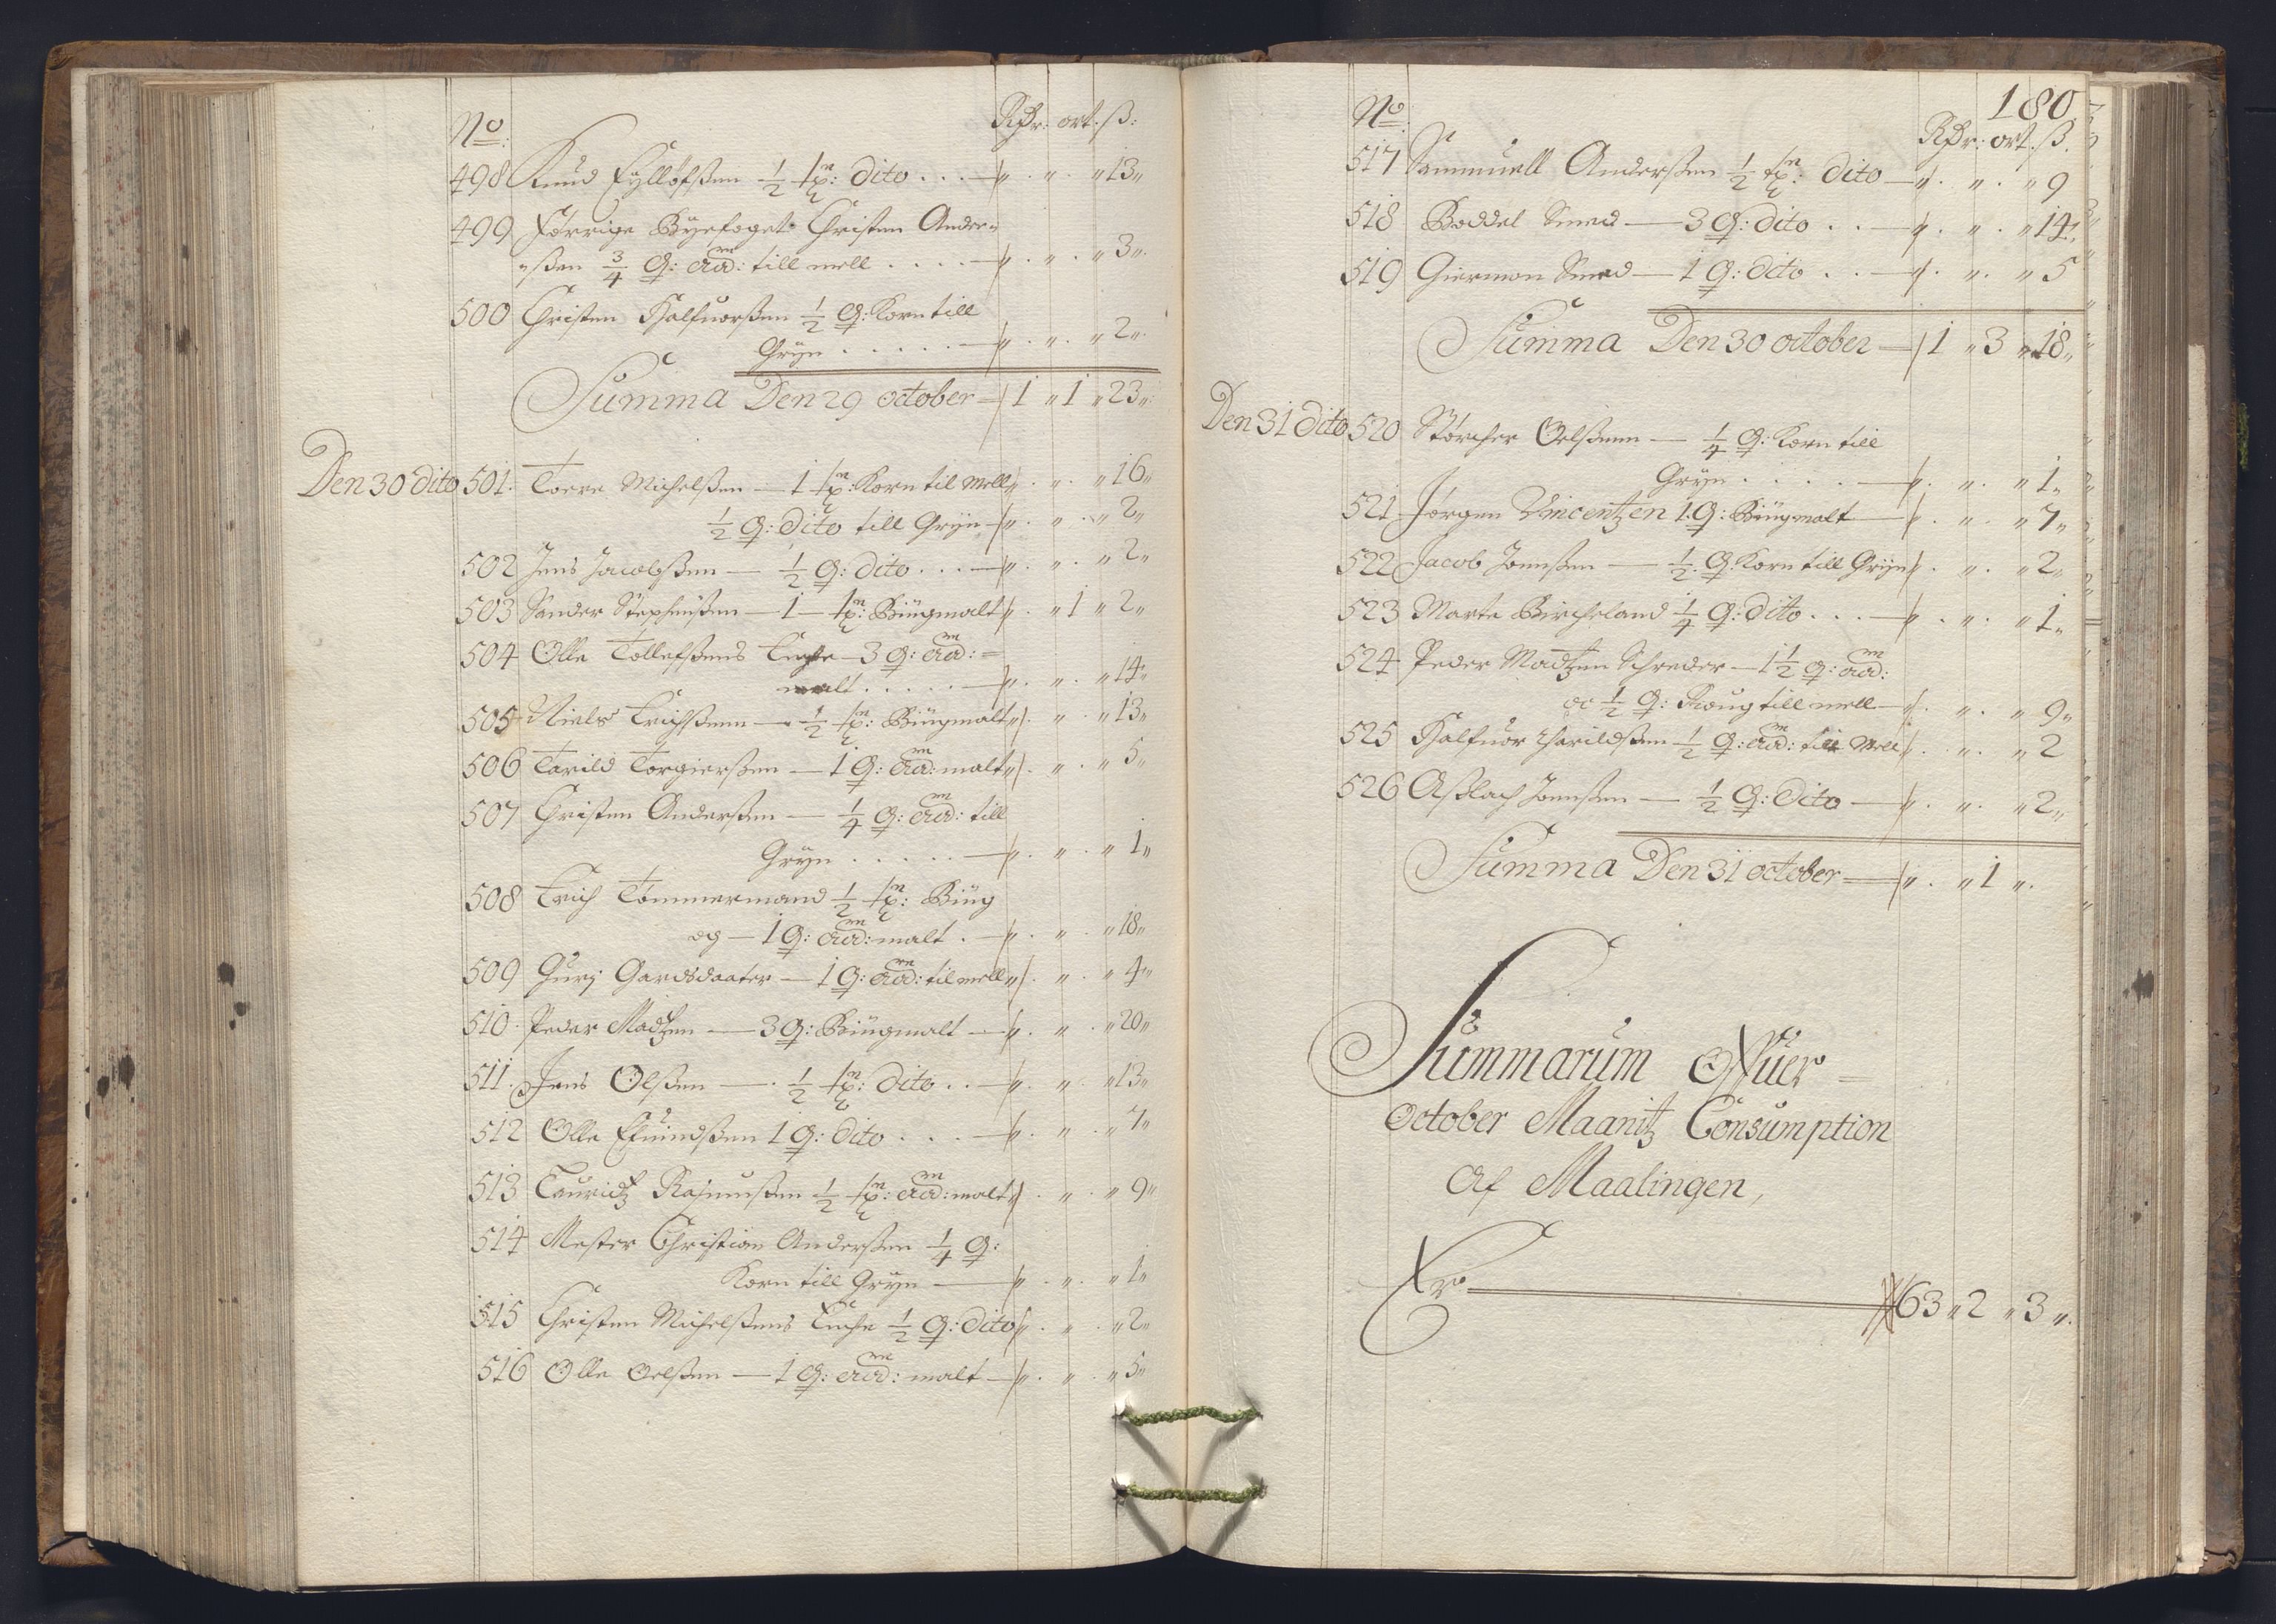 No: Rdr: ort. ß:
498 Knud Eyllofsßen ½ tn: dito . . . " . " . " 13 "
499 Forrige Byefoget Christen Ander=
=ßen ¾ q: ad: till mell . . . . " . " . " 3 "
500 Christen Halfuorßen ½ q: Korn till
Gryn . . . . . " . " . " 2 "
Summa Den 29 october 1 " 1 " 23 "
Den 30 dito 501. Toere Michelßen — 1 tn: Korn til Mell " . " . " 16 "
½ q: dito till Gryn " . " . " 2 "
502 Jens Jacobßen — ½ q: dito . . . " . " . " 2 "
503 Sander Stephenßen — 1 — tn: Bÿugmalt " . " 1 " 2 "
504 Olle Tollefßens Enche — 3 q: ad: =
malt . . . . . " . " . " 14 "
505 Niels Erichßenn — ½ tn: Bÿugmalt " . " . " 13 "
506 Tarild Torgierßen — 1 q: ad: malt " . " . " 5 "
507 Christen Anderßen — ¼ q: ad: till
Gryn . . . . . " . " . " 1 "
508 Erich Tommermand ½ tn: Bÿug
og — 1 q: ad: malt . " . " . " 18 "
509 Gurj Gardsdaater — 1 q: ad: til mell " . " . " 4 "
510 Peder Madtzen — 3 q: Bÿugmalt — " . " . " 20 "
511. Jens Olßen — . ½ tn: dito . . " . " . " 13 "
512 Olle Efuindßen 1 q: dito . . . " . " . " 7 "
513 Lauridtz Rasmusßen ½ tn: ad: malt " . " . " 9 "
514 Mester Christian Anderßen ¼ q:
Korn till Gryn — " . " . " 1 "
515 Christen Michelßens Enche ½ q: dito " . " . " 2 "
516 Olle Oelßen — 1 q: ad: malt " . " . " 5 "
180
No: Rdr: ort. ß.
517 Sammuell Anderßen ½ tn: dito — " . " . " 9
518 Boddel Smed — 3 q: dito . . — " . " . " 14 "
519 Giermon Smed — 1 q: dito . . — " . " . " 5
Summa Den 30 october — 1 " 3 " 18 "
Den 31 dito 520 Størcher Oelßenn — ¼ q: Korn till
Gryn . . . . — " . " . " 1 "
521 Jørgen Vincentzen 1 q: Bÿugmalt — " . " . " 7 "
522 Jacob Jonnßen — ½ q: Korn till Gryn " . " . " 2 "
523 Marte Bircheland ¼ q: dito . . . — " . " . " 1 "
524 Peder Madtzen Schreder — 1½ q: ad:
oc ½ q: Roug till mell — " . " . " 9 "
525 Halfuor Tharildßen ½ q: ad: till Mell " . " . " 2
526 Aßlach Jonnßen — ½ q: Dito — " . " . " 2 "
Summa Den 31 october — " . " 1 " .
Summarum Offuer =
October Maanitz Consumption
Af Maalingen,
Er — 63 " 2 " 3 " .